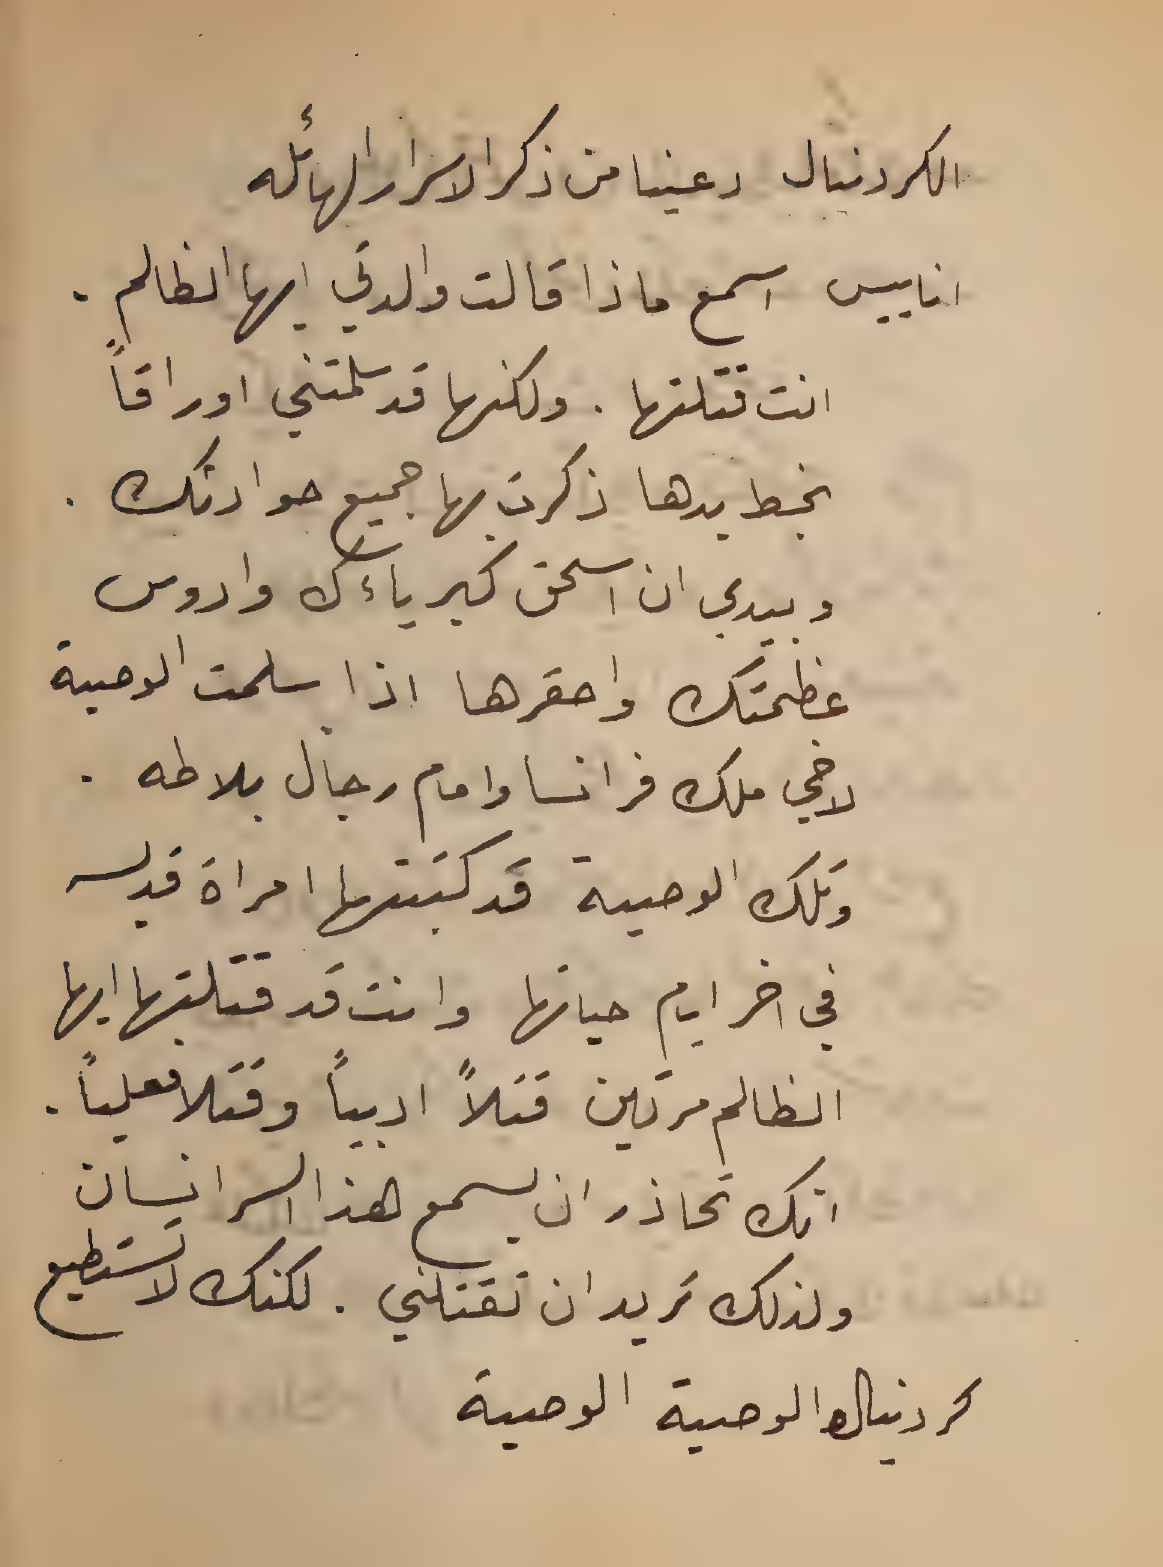 الكردنيال دعينا من ذكر الاسرار الهائله
انابيس اسمع ماذا قالت والدتي ايها الظالم .
انت قتلتها . ولكنها قد سلمتني اوراقاً
بخط يدها ذكرت بها جميع حوادثك .
وبيدي ان اسحق كبرياءك وادوس
عظمتك واحقرها اذا سلمت الوصية
لاخي ملك فرانسا وامام رجال بلاطه .
وتلك الوصية قد كتبتها امراة
في اخر ايام حياتها وانت قد قتلتها ايها
الظالم مرتين قتلاً ادبياً وقتلا فعلياً .
انك تحاذر ان يسمع هذا السر انسان
ولذلك تريد ان تقتلني . لكنك لا تستطيع
كردنيال الوصية الوصية